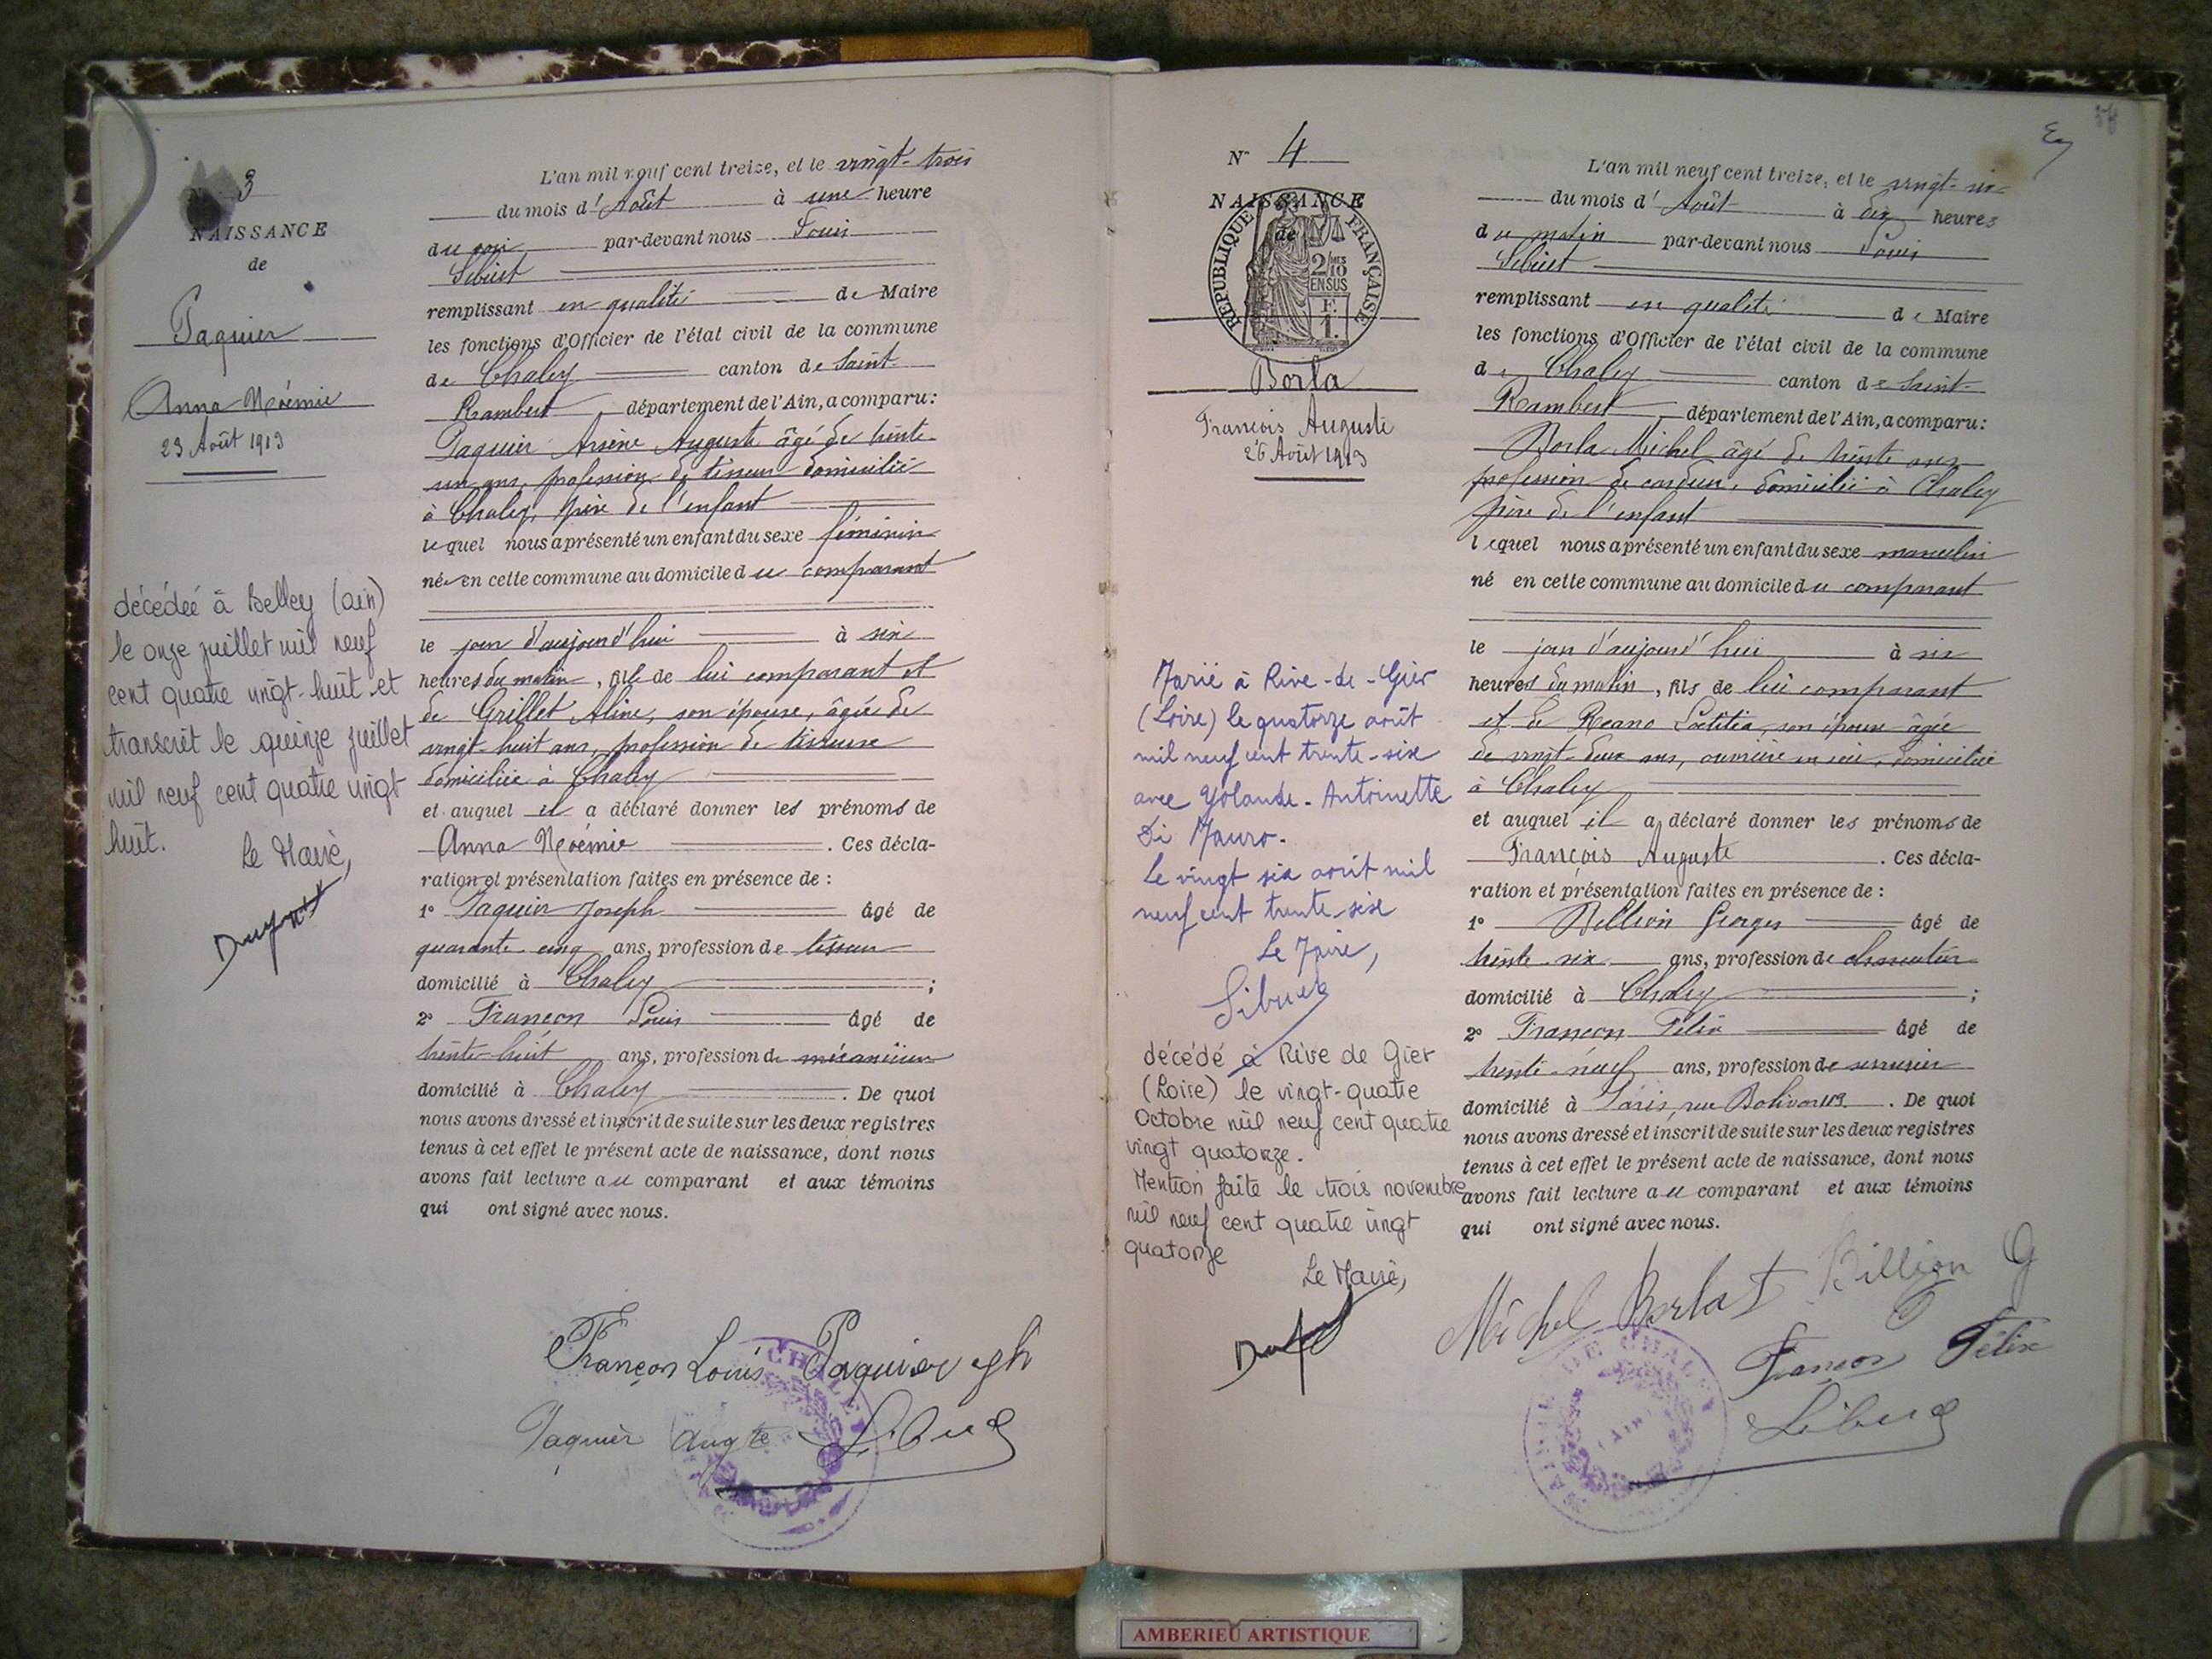 N° 3
NAISSANCE
de
Paquier
Anna Noémie
23 Août 1913
décédée à Belley (ain)
le onze juillet mil neuf
cent quatre vingt-huit et
transcrit le quinze juillet
mil neuf cent quatre vingt
huit.
Le Maire,
L'an mil neuf cent treize, et le vingt-trois
du mois d'Août à une heure
du soir par-devant nous Louis
Sibuet
remplissant en qualité de Maire
les fonctions d'Officier de l'état civil de la commune
de Chaley canton de Saint-
Rambert, département de l'Ain, a comparu:
Paquier Arsène Auguste âgé de trente-
un ans, profession de tisseur domicilié
à Chaley, père de l'enfant
lequel nous a présenté un enfant du sexe féminin
née en cette commune au domicile du comparant
le jour d'aujourd'hui à six
heures du matin, fille de lui comparant et
de Grillet Aline, son épouse, âgée de
vingt-huit ans, profession de tisseuse
domiciliée à Chaley
et auquel il a déclaré donner les prénoms de
Anna Noémie. Ces décla-
ration et présentation faites en présence de :
1° Paquier Joseph âgé de
quarante-cinq ans, profession de tisseur
domicilié à Chaley ;
2° Françon Louis âgé de
trente-huit ans, profession de mécanicien
domicilié à Chaley. De quoi
nous avons dressé et inscrit de suite sur les deux registres
tenus à cet effet le présent acte de naissance, dont nous
avons fait lecture au comparant et aux témoins
qui ont signé avec nous.
Françon Louis Paquier jph
Paquier Augte Sibuet
N° 4
NAISSANCE
de
RÉPUBLIQUE FRANÇAISE
2/10MES
EN SUS
F.
1.
Borla
François Auguste
26 Août 1913
Marié à Rive-de-Gier
(Loire) le quatorze août
mil neuf cent trente-six
avec Yolande-Antoinette
Di Mauro.
Le vingt six août mil
neuf cent trente-six
Le Maire,
Sibuet
décédé à Rive de Gier
(Loire) le vingt-quatre
Octobre mil neuf cent quatre
vingt quatorze.
Mention faite le trois novembre
mil neuf cent quatre vingt
quatorze
Le Maire,
L'an mil neuf cent treize, et le vingt-six
du mois d'Août à dix heures
du matin par-devant nous Louis
Sibuet
remplissant en qualité de Maire
les fonctions d'Officier de l'état civil de la commune
de Chaley canton de Saint-
Rambert, département de l'Ain, a comparu:
Borla Michel âgé de trente ans
profession de cardeur, domicilié à Chaley
père de l'enfant
lequel nous a présenté un enfant du sexe masculin
né en cette commune au domicile du comparant
le jour d'aujourd'hui à six
heures du matin, fils de lui comparant
et de Reano Laetitia, son épouse âgée
de vingt-deux ans, ouvrière en soie, domiciliée
à Chaley
et auquel il a déclaré donner les prénoms de
François Auguste. Ces décla-
ration et présentation faites en présence de :
1° Billion Georges âgé de
trente-six ans, profession de charcutier
domicilié à Chaley ;
2° Françon Félix âgé de
trente-neuf ans, profession de
domicilié à Paris, rue Bolivar 119. De quoi
nous avons dressé et inscrit de suite sur les deux registres
tenus à cet effet le présent acte de naissance, dont nous
avons fait lecture au comparant et aux témoins
qui ont signé avec nous.
Michel Borlat Billion G
Françon Félix
Sibuet
MAIRIE DE CHALEY
(AIN)
AMBERIEU ARTISTIQUE